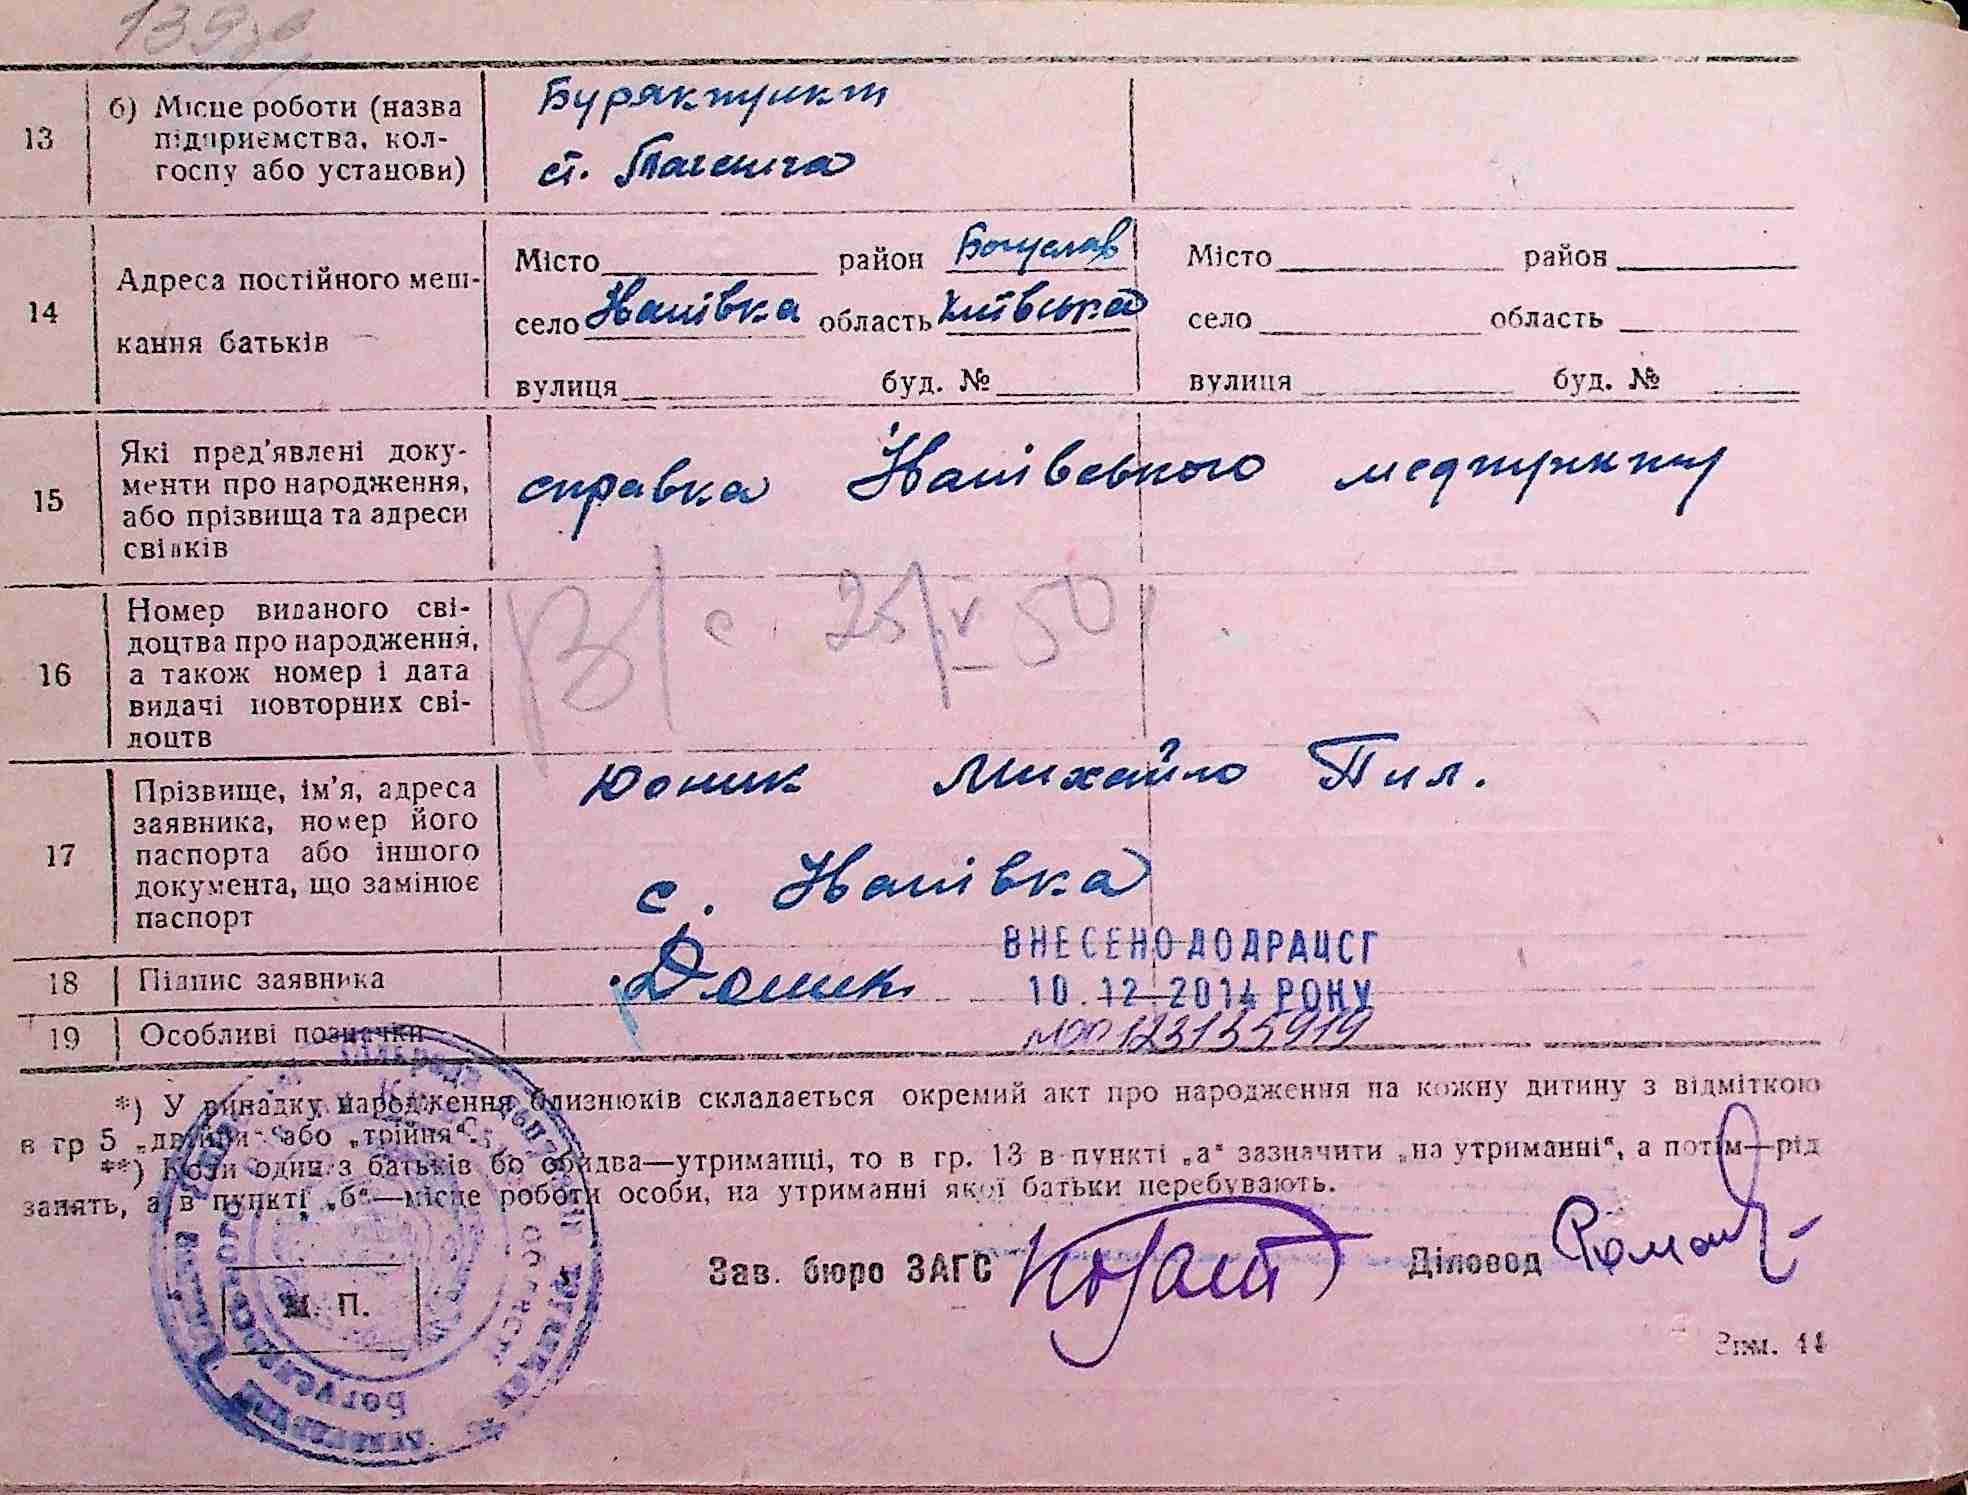 13
б) Місце роботи (назва
підприємства, кол-
госпу або установи)
Бурякпункт
ст. Таганча
14
Адреса постійного меш-
кання батьків
Місто район Богуслав
село Іванівка область Київська
вулиця буд. №
Місто район
село область
вулиця буд. №
15
Які пред'явлені доку-
менти про народження,
або прізвища та адреси
свідків
справка Іванівського медпункту
16
Номер виданого сві-
доцтва про народження,
а також номер і дата
видачі повторних сві-
доцтв
с. 25/V 50
17
Прізвище, ім'я, адреса
заявника, номер його
паспорта або іншого
документа, що замінює
паспорт
Михайло Пил.
с. Іванівка
18 Підпис заявника
ВНЕСЕНО ДО ДРАЦСГ
10.12.2014 РОКУ
19 Особливі позначки
№00123135919
*) У випадку народження близнюків складається окремий акт про народження на кожну дитину з відміткою
в гр 5 „двійня“ або „трійня“.
**) Коли один з батьків бо обидва—утриманці, то в гр. 13 в пункті „а“ зазначити „на утриманні“, а потім—рід
занять, а в пункті „б“—місце роботи особи, на утриманні якої батьки перебувають.
Зав. бюро ЗАГС
Діловод
М. П.